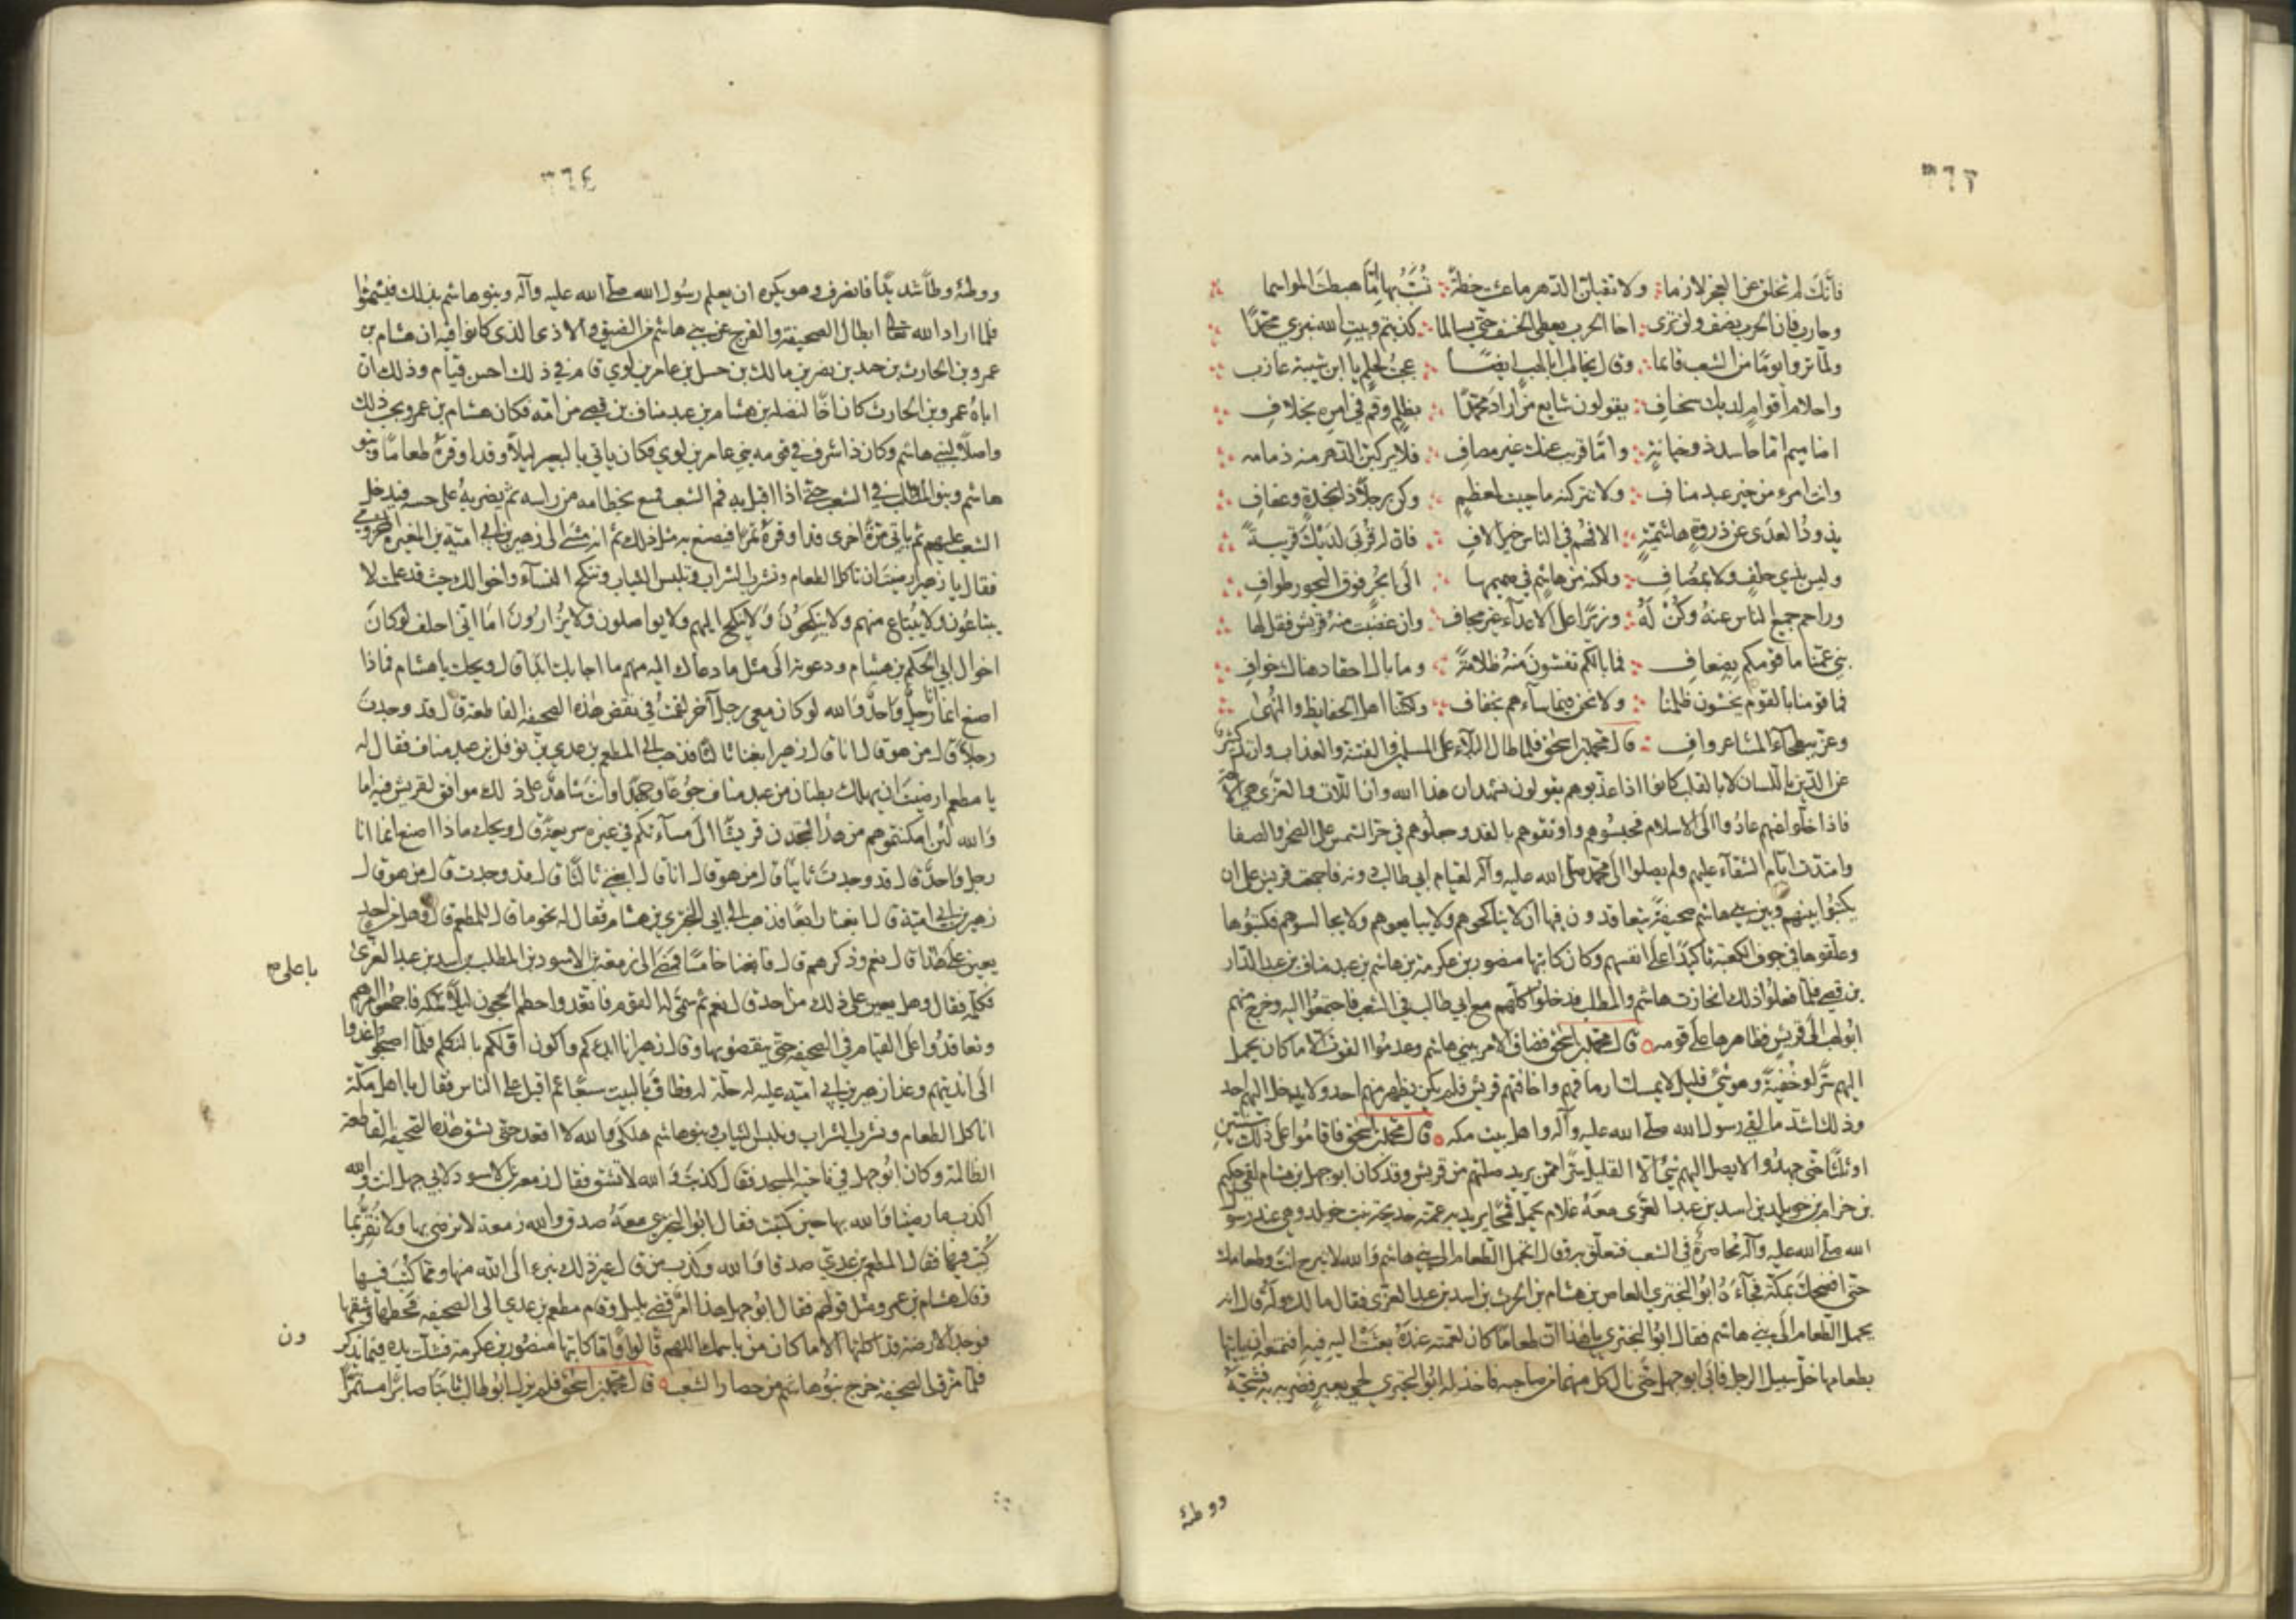 ٣٦٣
فانك لم تخلق على العجز لازما ولا تقبلن الدهر ما عشت خطة تُسَبُّ بها إمّا هبطت المواسما
وحارب فان الحرب نصف ولن ترى اخا الحرب يعطى الخسف حتى يسالما كذبتم وبيت الله نبزي محمدًا
ولما تروا يومًا من الشعب قائما وقال يخاطب ابا لهب ايضًا عجبت لحلم يا ابن شيبة عازب
واحلام اقوام لديك سخاف يقولون شايع من اراد محمدًا بظلم وقم في امره بخلاف
اضاميم اما حاسد ذو خيانة واما قريب عنك غير مصاف فلا يركبن الدهر منه ذمامه
وانت امرء من خير عبد مناف ولا تتركنه ما حييت لمعظم وكن رجلاً ذا نجدة وعفاف
يذود العدى عن ذروة هاشمية الافهم في الناس خير الاف فان له قربى لديك قريبة
وليس بذي حلف ولا بمضاف ولكنه من هاشم في صميمها الى ابحر فوق البحور طواف
وزاحم جميع الناس عنه وكن له وزيرًا على الاعداء غير مجاف وان غضبت منه قريش فقل لها
بني عمنا ما قومكم بضعاف فما بالكم تغشون منه ظلامةً وما بال احقاد هناك خواف
فما قومنا بالقوم يخشون ظلمنا ولا نحن فيما ساءهم بخفاف ولكننا اهل الحفايظ والنهى
وعز ببطحاء المشاعر واف قال محمد بن اسحق فلما طال البلاء على المسلمين والفتنة والعذاب وارتد كثير
عن الدين باللسان لا بالقلب كانوا اذا عذبوهم يقولون نشهد ان هذا الله وان اللات والعزى هي الآلهة
فاذا خلوا عنهم عادوا الى الاسلام فحبسوهم واوثقوهم بالقد وجعلوهم في حر الشمس على الصخر والصفا
وامتدت ايام الشقاء عليهم ولم يصلوا الى محمد صلى الله عليه وآله لقيام ابي طالب دونه فاجمعت قريش على ان
يكتبوا بينهم وبين بني هاشم صحيفةً يتعاقدون فيها ان لا يناكحوهم ولا يبايعوهم ولا يجالسوهم فكتبوها
وعلقوها في جوف الكعبة تأكيدًا على انفسهم وكان كاتبها منصور بن عكرمة بن هاشم بن عبد مناف بن عبد الدار
بن قصي فلما فعلوا ذلك انحازت هاشم والمطلب فدخلوا كلهم مع ابي طالب في الشعب فاجتمعوا اليه وخرج منهم
ابو لهب الى قريش فظاهرها على قومه قال محمد بن اسحق فضاق الامر ببني هاشم وعدموا القوت الا ما كان يحمل
اليهم سرًّا وخفيةً وهو شيء قليل لا يمسك ارماقهم واخافتهم قريش فلم يكن يظهر منهم احد ولا يدخل اليهم احد
وذلك اشد ما لقي رسول الله صلى الله عليه وآله واهل بيت مكه قال محمد بن اسحق فاقاموا على ذلك سنتين
او ثلثًا حتى جهدوا لا يصل اليهم شيء الا القليل سرًّا ممن يريد صلتهم من قريش وقد كان ابو جهل بن هشام لقي حكيم
بن حزام بن خويلد بن اسد بن عبد العزى معه غلام يحمل قمحًا يريد به عمته خديجة بنت خويلد وهي عند رسول
الله صلى الله عليه وآله محاصرةً في الشعب فتعلق به وقال اتحمل الطعام الى بني هاشم والله لا تبرح انت وطعامك
حتى افضحك بمكة فجاءه ابو البختري العاص بن هشام بن الحرث بن اسد بن عبد العزى فقال ما لك وله قال انه
يحمل الطعام الى بني هاشم فقال ابو البختري يا هذا ان طعامًا كان لعمته عنده بعثت اليه فيه افتمنعه ان يأتيها
بطعامها خل سبيل الرجل فابى ابو جهل حتى نال كل منهما من صاحبه فاخذ له ابو البختري لحي بعير فضربه به فشجه
ووطئه
٣٦٤
ووطئه وطأً شديدًا فانصرف وهو يكره ان يعلم رسول الله صلى الله عليه وآله وبنو هاشم بذلك فيشمتوا
فلما اراد الله تعالى ابطال الصحيفة والفرج عن بني هاشم من الضيق والاذى الذي كانوا فيه ان هشام بن
عمرو بن الحارث بن حبيب بن نصر بن مالك بن حسل بن عامر بن لوي قام في ذلك احسن قيام وذلك ان
اباه عمرو بن الحارث كان اخًا لنضلة بن هشام بن عبد مناف بن قصي من امه فكان هشام بن عمرو يحب ذلك
واصلاً لبني هاشم وكان ذا شرف في قومه بني عامر بن لوي فكان ياتي بالبعير ليلاً وقد اوقره طعامًا وبنو
هاشم وبنو المطلب في الشعب حتى اذا اقبل به فم الشعب فنع بخطامه من راسه ثم يضربه على جنبه فيدخل
الشعب عليهم ثم ياتي مرةً اخرى قد اوقره تمرًا فيصنع به مثل ذلك ثم انه مشى الى زهير بن ابي امية بن المغيرة المخزومي
فقال يا زهير ارضيت ان تاكل الطعام وتشرب الشراب وتلبس الثياب وتنكح النساء واخوالك حيث قد علمت لا
يبتاعون ولا يبتاع منهم ولا ينكحون ولا ينكح اليهم ولا يواصلون ولا يزارون اما اني احلف لو كان
اخوال ابي الحكم بن هشام ودعوته الى مثل ما دعاك اليه منهم ما اجابك ابدًا قال ويحك يا هشام فماذا
اصنع انما انا رجل واحد والله لو كان معي رجل آخر لقمت في نقض هذه الصحيفه القاطعة قال قد وجدت
رجلاً قال من هو قال انا قال زهير ابغنا ثالثًا فذهب الى المطعم بن عدي بن نوفل بن عبد مناف فقال له
يا مطعم ارضيت ان يهلك بطنان من عبد مناف جوعًا وجهدًا وانت شاهد على ذلك موافق لقريش فيه اما
والله لئن امكنتموهم من هذا لتجدن قريشًا الى مساءتكم في غيره سريعة قال ويحك ماذا اصنع انما انا
رجل واحد قال قد وجدت ثانيًا قال من هو قال انا قال ابغني ثالثًا قال قد وجدت قال من هو قال
زهير بن ابي امية قال ابغنا رابعًا فذهب الى ابي البختري بن هشام فقال له نحو ما قال للمطعم قال وهل من احد
يعين على هذا قال نعم وذكرهم قال فابغنا خامسًا فمضى الى زمعة بن الاسود بن المطلب بن اسد بن عبد العزى
فكلمه فقال وهل يعين على ذلك من احد قال نعم ثم سمى له القوم فاتعدوا حطم الحجون ليلاً بمكه فاجمعوا امرهم باعلى صح
وتعاقدوا على القيام في الصحيفه حتى ينقضوها وقال زهير انا ابدءكم واكون اولكم بالتكلم فلما اصبحوا غدوا
الى انديتهم وغدا زهير بن ابي امية عليه له حلة له وطاف بالبيت سبعًا ثم اقبل على الناس فقال يا اهل مكة
اناكل الطعام ونشرب الشراب ونلبس الثياب وبنو هاشم هلكى والله لا اقعد حتى تشق هذه الصحيفه القاطعة
الظالمة وكان ابو جهل في ناحية المسجد فقال كذبت والله لا تشق فقال زمعة بن الاسود لابي جهل انت والله
اكذب ما رضينا والله بها حين كتبت فقال ابو البختري معه صدق والله زمعة لا نرضى بها ولا نقر بما
كتب فيها فقال المطعم بن عدي صدقا والله وكذب من قال غير ذلك نبرء الى الله منها ومما كتب فيها
وقال هشام بن عمرو مثل قولهم فقال ابو جهل هذا امر قضي بليل وقام مطعم بن عدي الى الصحيفه فحطها وشقها
فوجد الارضة قد اكلتها الا ما كان من باسمك اللهم قالوا واما كاتبها منصور بن عكرمة فشلت يده فيما يذكرون
فلما مزقت الصحيفه خرج بنو هاشم من حصار الشعب قال محمد بن اسحق فلم يزل ابو طالب ثابتًا صابرًا مستمرًّا